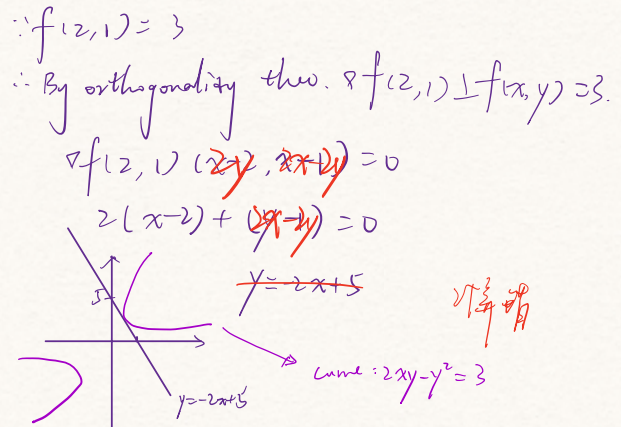 ∵ f(2,1) = 3
∴ By orthogonality theo. ∇f(2,1) ⊥ f(x,y) = 3.
∇f(2,1) (2y, 2x-2y) = 0
2(x-2) + (2x-2y) = 0
y = -2x+5
5
curve : 2xy-y² = 3
y=-2x+5